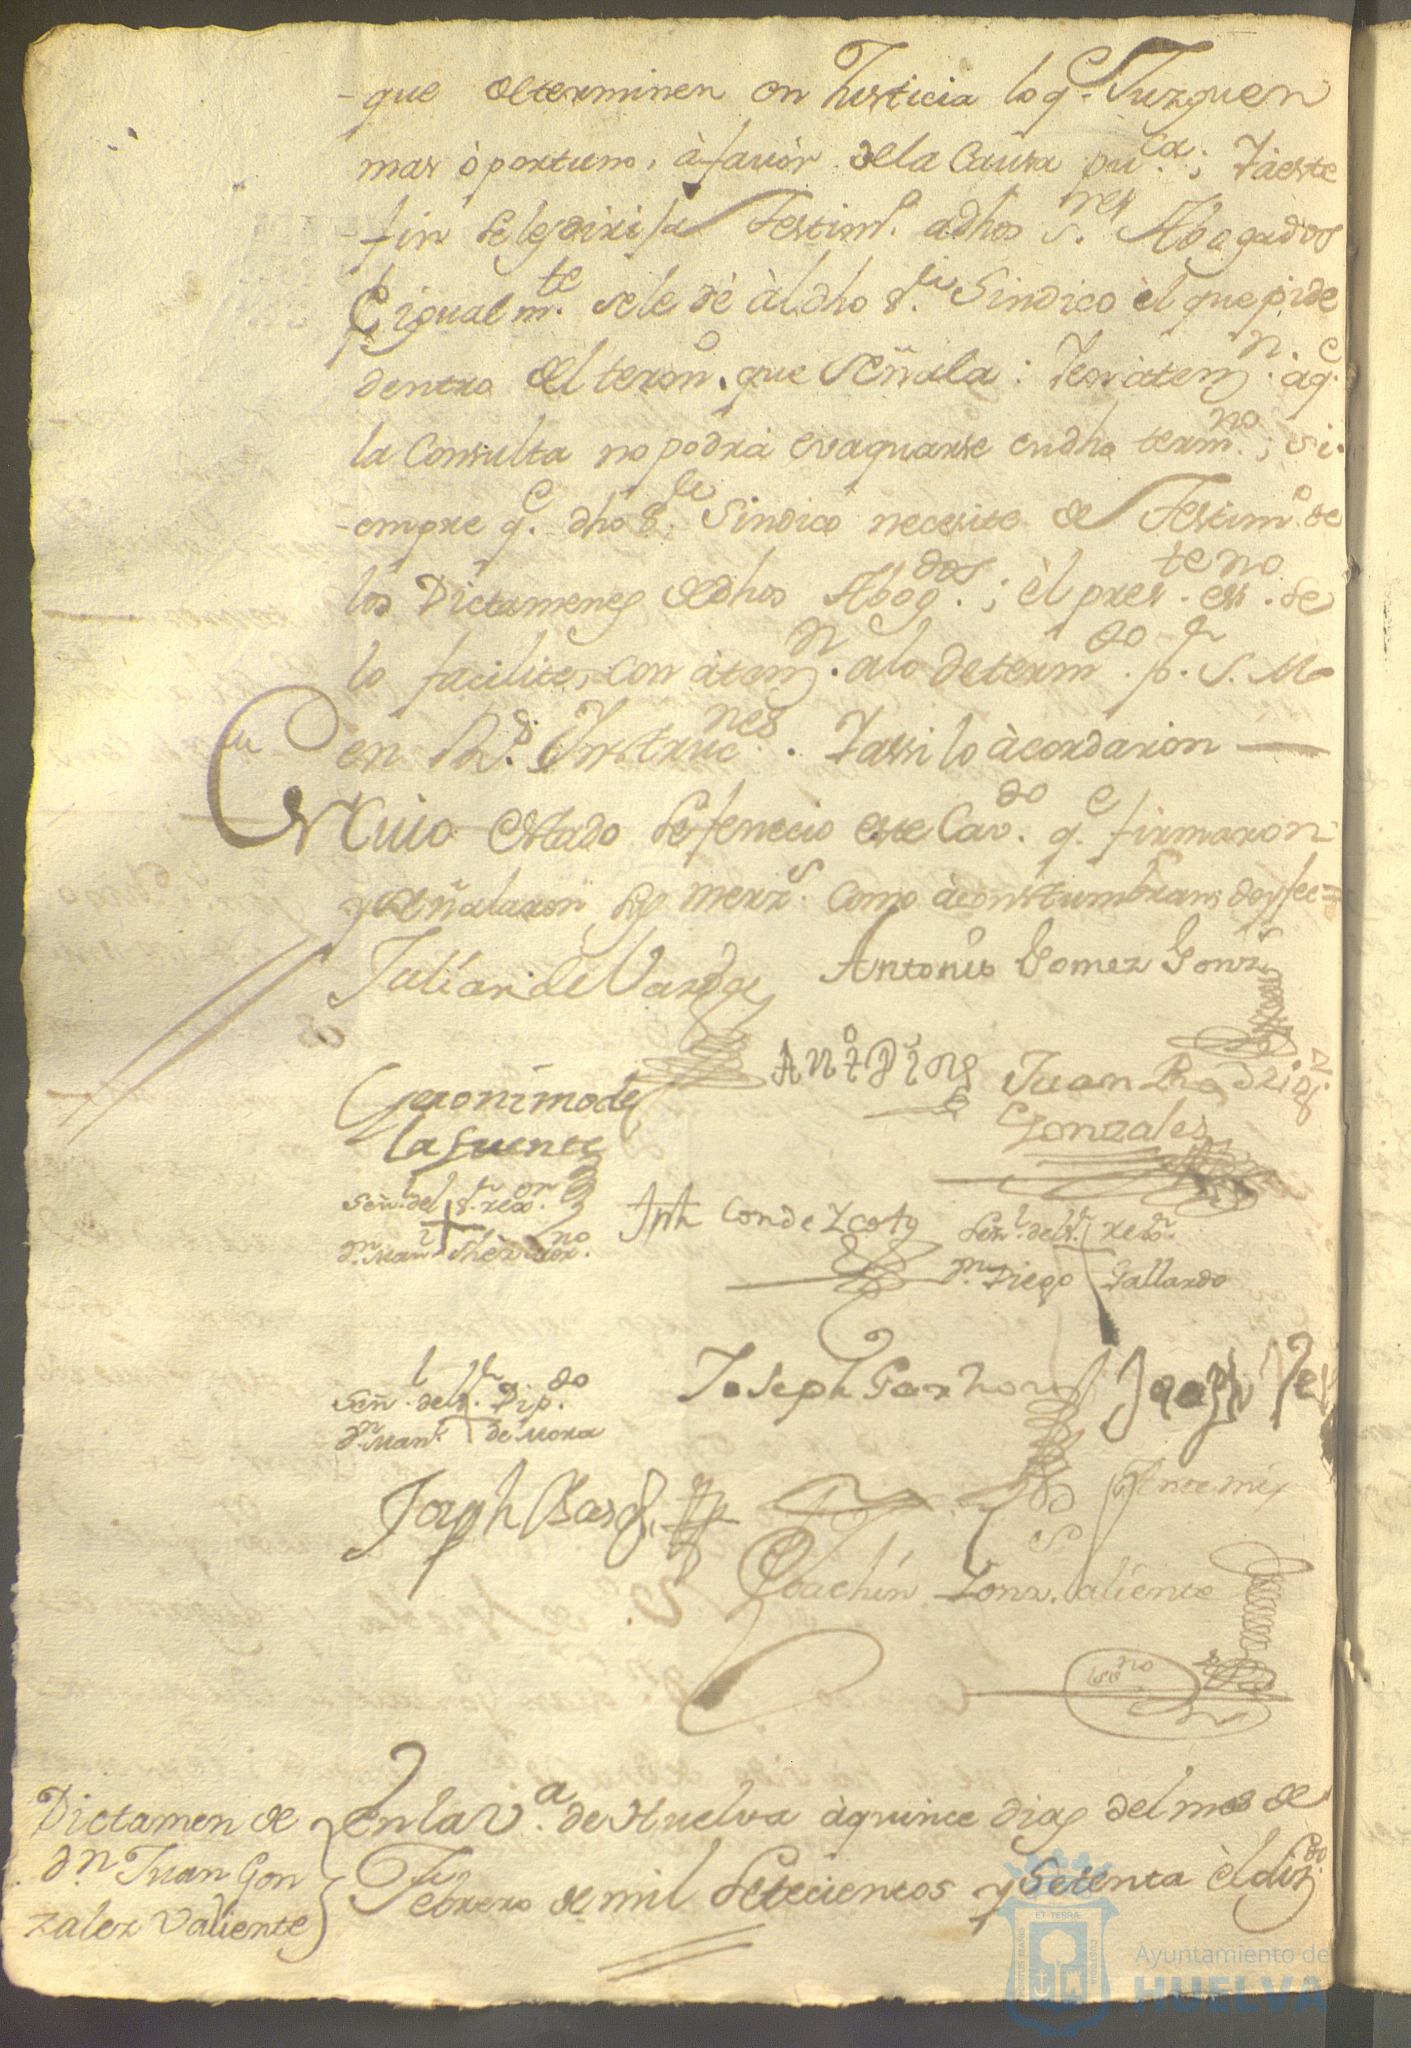 que determinen en Justicia lo q.e Juzguen
mas òportuno, à favòr dela Causa pu.ca; Yàeste
fin se les dirija Testim.o adhos S.res Abogados
è igualm.te sele dè àldho S.r Sindico èl que pide
dentro del term.o que señala: Yen àtenz.n àq.e
la Consulta no podrà evaquarse endho term.no; si-
empre q.e dho S.r Sindico necesite de Testim.o de
los Dictamenes dedhos Abog.dos; èl pres.te ess.no se
lo facilite, con àtenz.n alo determ.do p.r S. M.
en R.s Ynstruc.nes. Yassi lo àcordaron
En Cuio estado se fenecio este Cav.do q.e firmaron
y señalaron sus merz.s como àcostumbran; doy fee=
Julian de
Antonio Gomez Gonz.s
Geronimo de
la Fuente
Juan Rodrig.z
Gonzales
Señ.l del S.r rex.or
d.n Man.l
Señ.l del S.r rex.or
d.n Diego Gallardo
Señ.l del S.r Dip.do
d.n Man.l de Mora
Joseph
Joseph
Joseph
Ante mi
Joachin Gonz. Valiente
ess.no
Dictamen de
dn Juan Gon
zalez Valiente
En la V.a de Huelva àquince dias del mes de
Febrero de mil setecientos y Setenta èl
ET TERRÆ
Ayuntamiento de
HUELVA